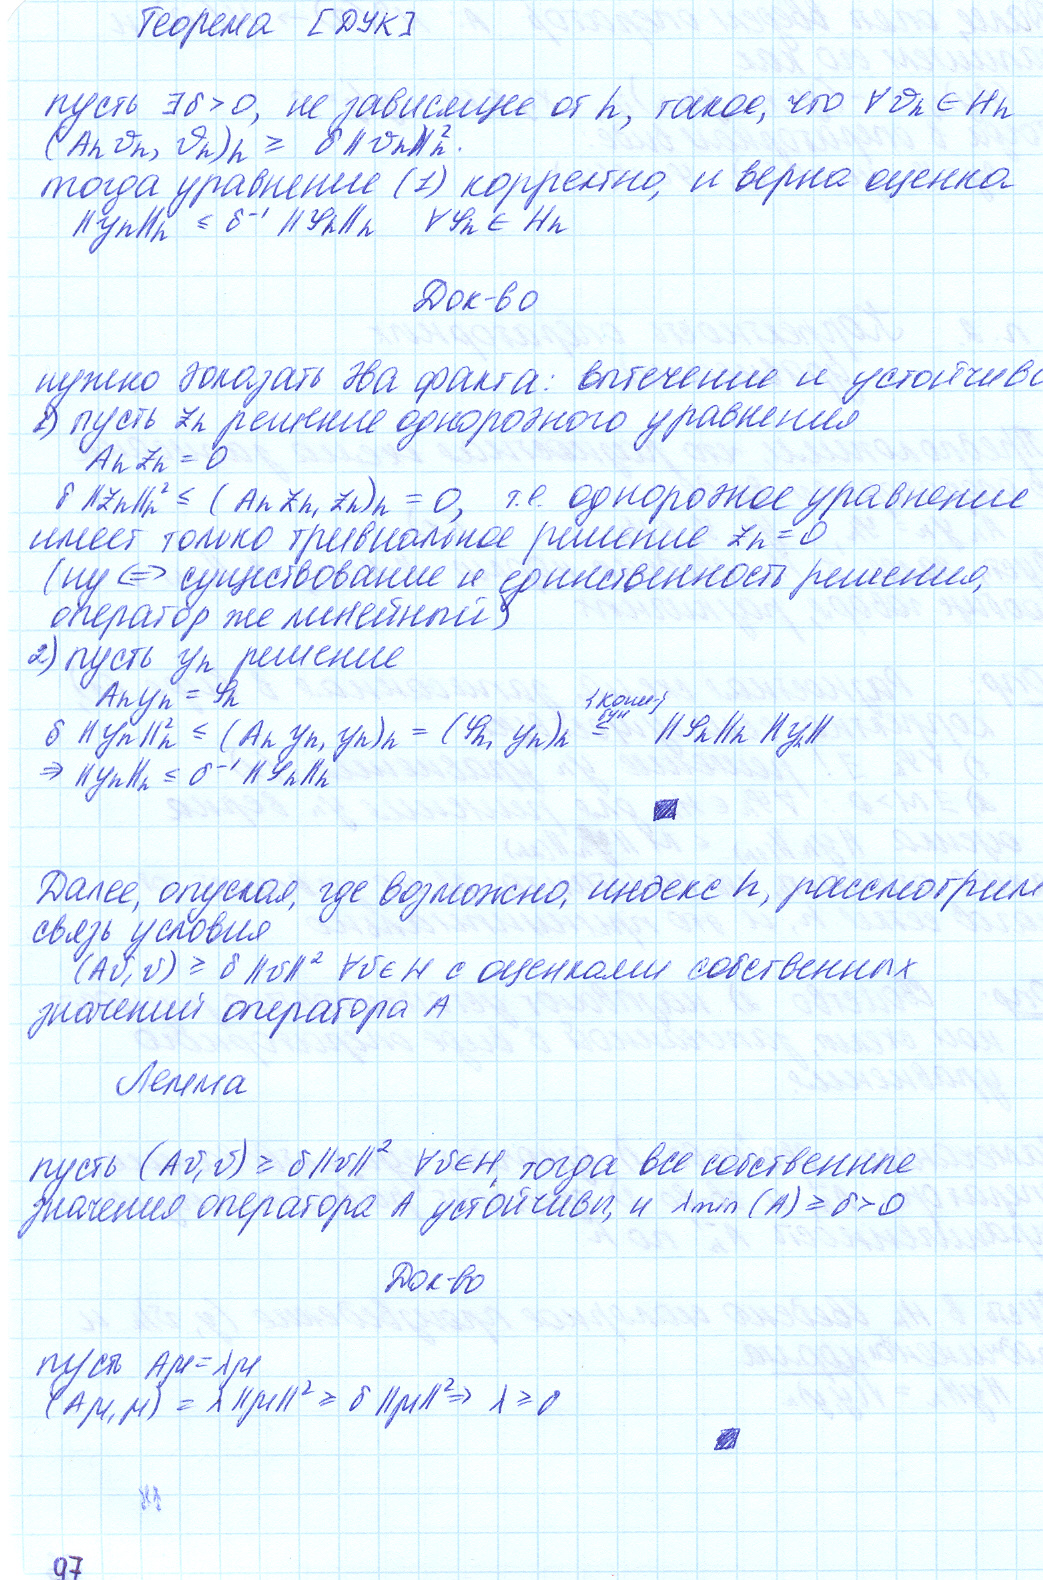 Теорема [ДУК]
пусть ∃δ>0, не зависящее от h, такое, что ∀ϑₕ ∈ Hₕ
(Aₕϑₕ, ϑₕ)ₕ ≥ δ‖ϑₕ‖ₕ².
тогда уравнение (1) корректно, и верна оценка
‖yₕ‖ₕ ≤ δ⁻¹ ‖φₕ‖ₕ ∀φₕ ∈ Hₕ
Док-во
нужно доказать два факта: вытечение и устойчиво
1) пусть zₕ решение однородного уравнения
Aₕzₕ = 0
δ‖zₕ‖ₕ² ≤ (Aₕzₕ, zₕ)ₕ = 0, т.е. однородное уравнение
имеет только тривиальное решение zₕ=0
(ну ⇔ существование и единственность решения,
оператор же линейный)
2) пусть yₕ решение
Aₕyₕ = φₕ
δ‖yₕ‖ₕ² ≤ (Aₕyₕ, yₕ)ₕ = (φₕ, yₕ)ₕ ≤ {Коши-Бун} ‖φₕ‖ₕ ‖yₕ‖
⇒ ‖yₕ‖ₕ ≤ δ⁻¹‖φₕ‖ₕ
Далее, опуская, где возможно, индекс h, рассмотрим
связь условия
(Aϑ,ϑ) ≥ δ‖ϑ‖² ∀ϑ∈H с оценками собственных
значений оператора A
Лемма
пусть (Aϑ,ϑ) ≥ δ‖ϑ‖² ∀ϑ∈H, тогда все собственные
значения оператора A устойчивы, и λmin(A) ≥ δ>0
Док-во
пусть Aμ=λμ
(Aμ,μ) = λ‖μ‖² ≥ δ‖μ‖² ⇒ λ ≥ δ
97